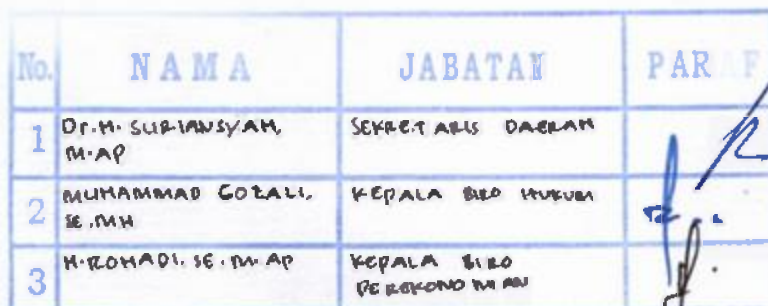 No. NAMA JABATAN PARAF
1 Dr.H. SURIANSYAH, SEKRETARIS DAERAH
M.AP
2 MUHAMMAD GOZALI, KEPALA BIRO HUKUM
SE.MH
3 H.ROHADI.SE.M.AP KEPALA BIRO
PEREKONOMIAN